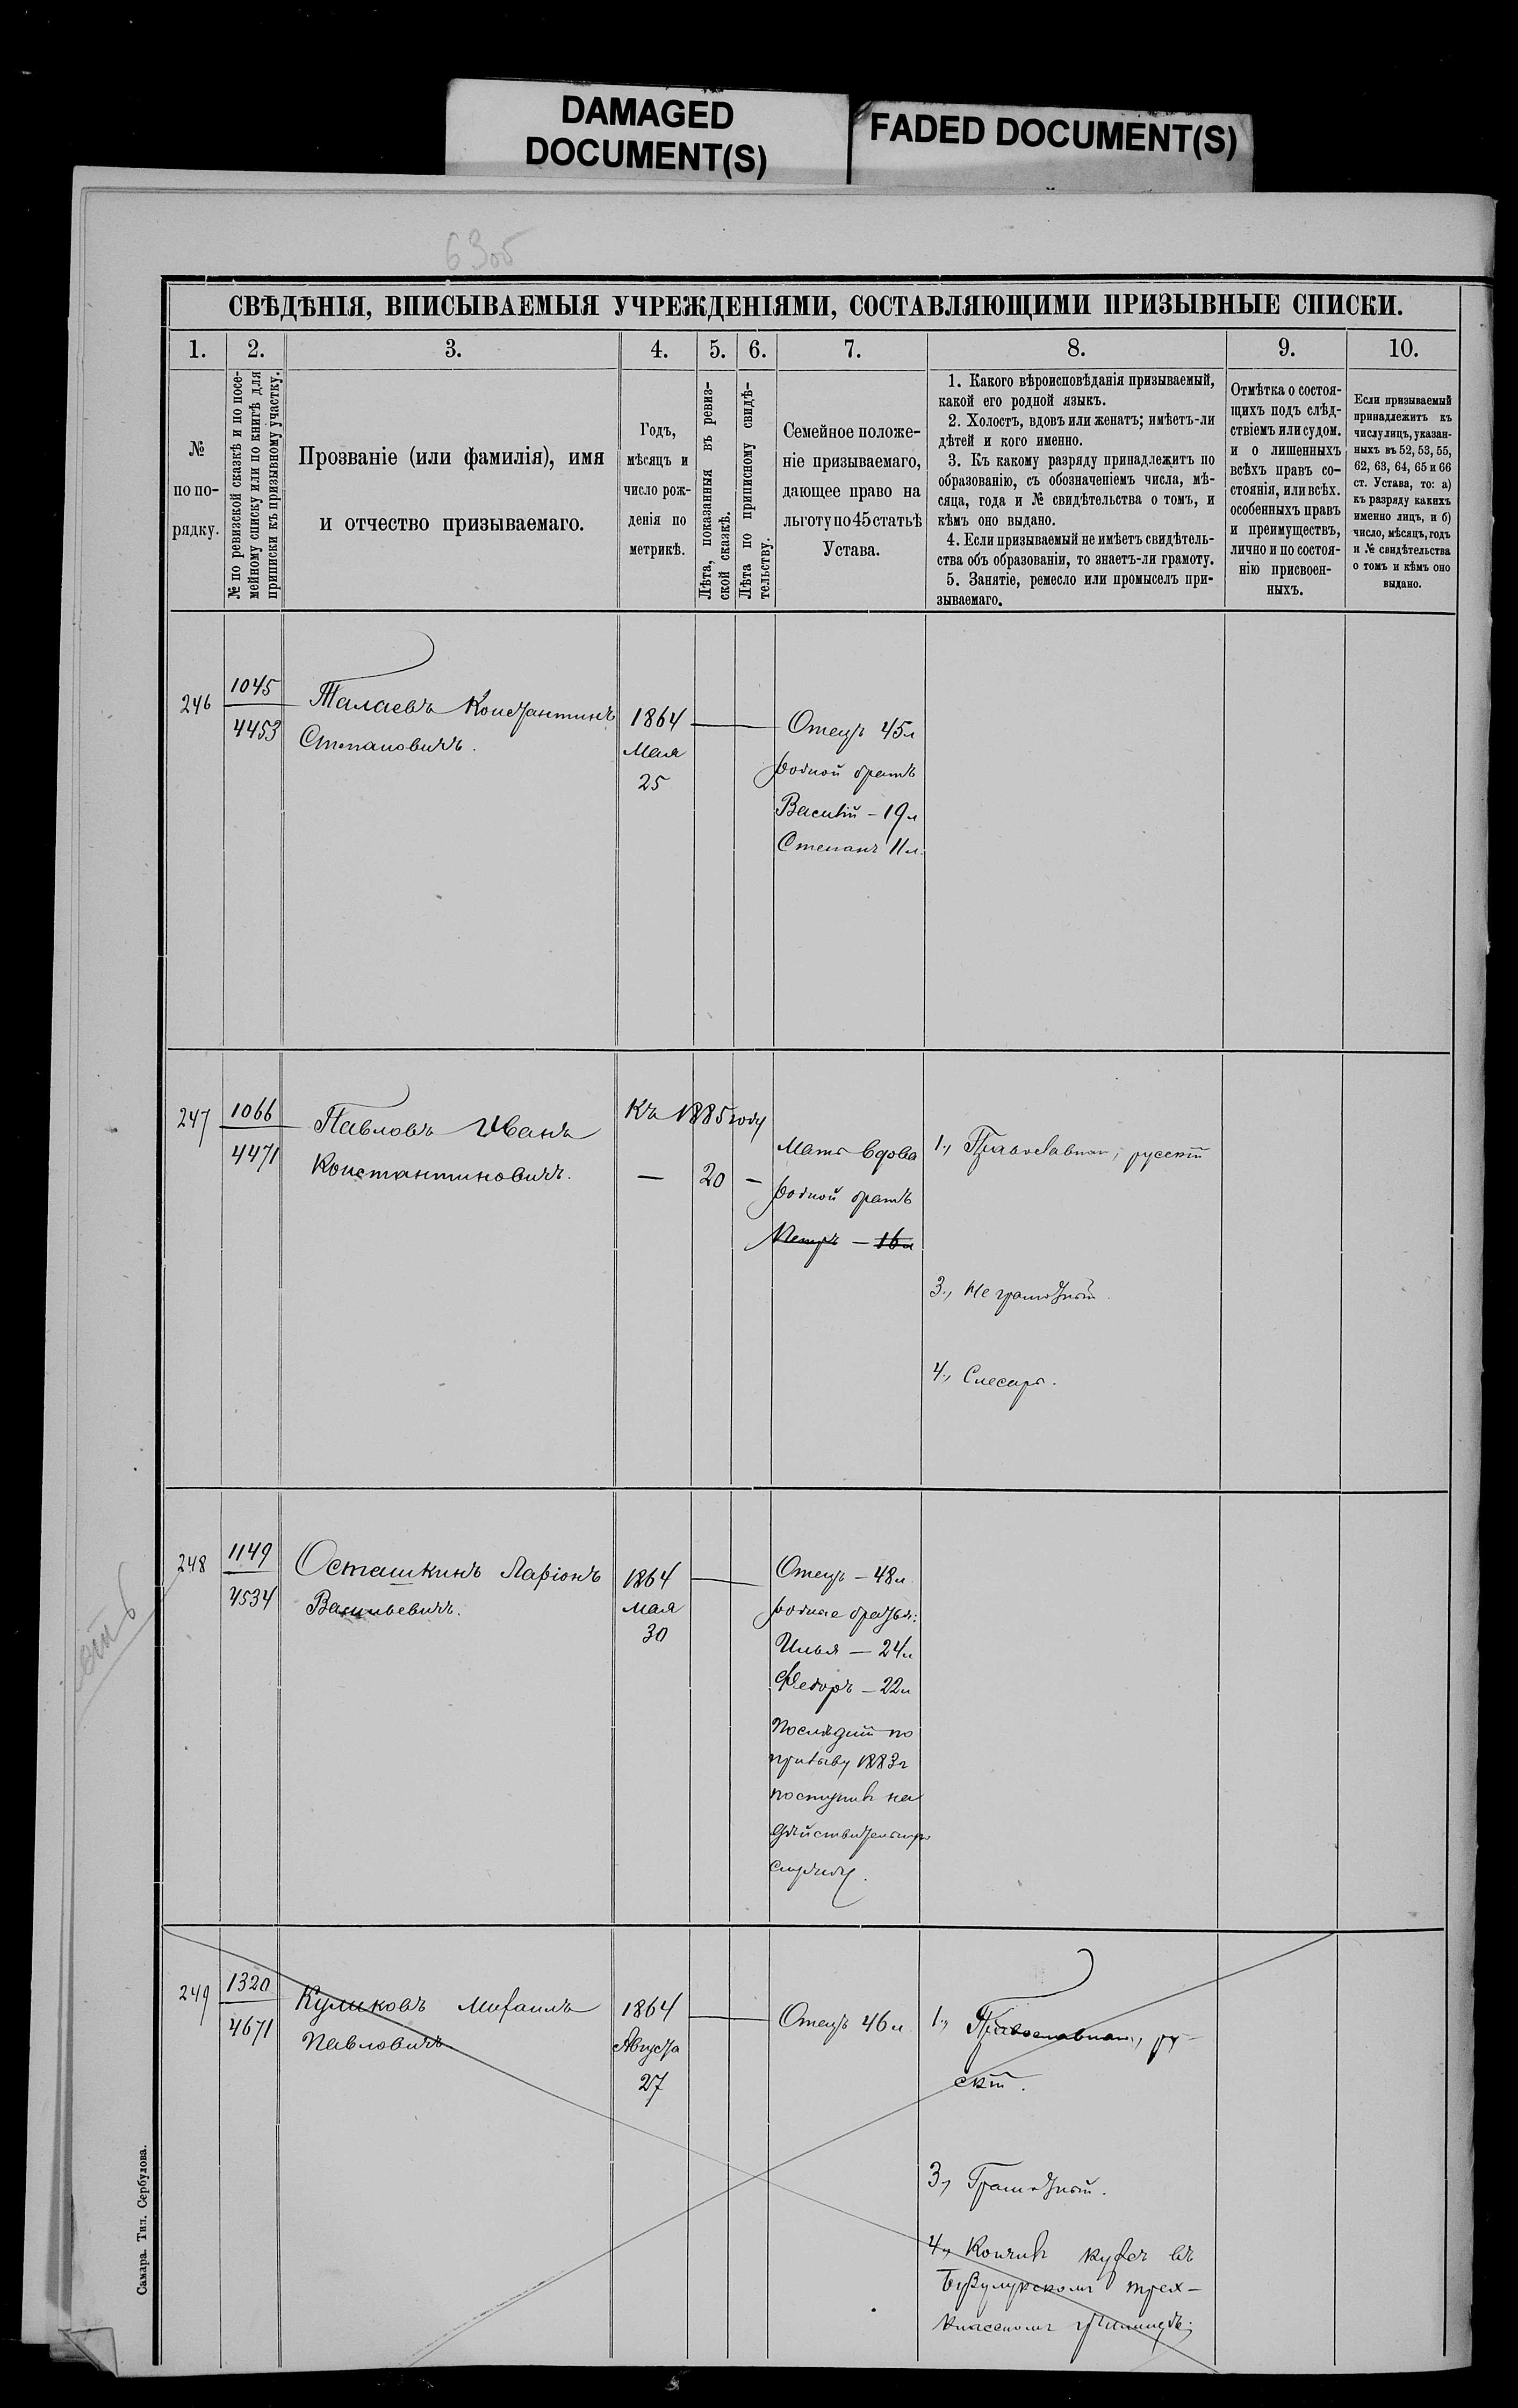 DAMAGED
DOCUMENT(S)
FADED DOCUMENT(S)
6305
СВѢДѢНІЯ, ВПИСЫВАЕМЫЯ УЧРЕЖДЕНІЯМИ, СОСТАВЛЯЮЩИМИ ПРИЗЫВНЫЕ СПИСКИ.
1.
2.
3.
4.
5.
6.
7.
8.
9.
10.
№
по по-
рядку.
№ по ревизской сказкѣ и по посе-
мейному списку или по книгѣ для
приписки къ призывному участку.
Прозваніе (или фамилія), имя
и отчество призываемаго.
Годъ,
мѣсяцъ и
число рож-
денія по
метрикѣ.
Лѣта, показанныя въ ревиз-
ской сказкѣ.
Лѣта по приписному свидѣ-
тельству.
Семейное положе-
ніе призываемаго,
дающее право на
льготу по 45 статьѣ
Устава.
1. Какого вѣроисповѣданія призываемый,
какой его родной языкъ.
2. Холостъ, вдовъ или женатъ; имѣетъ-ли
дѣтей и кого именно.
3. Къ какому разряду принадлежитъ по
образованію, съ обозначеніемъ числа, мѣ-
сяца, года и № свидѣтельства о томъ, и
кѣмъ оно выдано.
4. Если призываемый не имѣетъ свидѣтель-
ства объ образованіи, то знаетъ-ли грамоту.
5. Занятіе, ремесло или промыселъ при-
зываемаго.
Отмѣтка о состоя-
щихъ подъ слѣд-
ствіемъ или судом.
и о лишенныхъ
всѣхъ правъ со-
стоянія, или всѣх.
особенныхъ правъ
и преимуществъ,
лично и по состоя-
нію присвоен-
ныхъ.
Если призываемый
принадлежитъ къ
числу лицъ, указан-
ныхъ въ 52, 53, 55,
62, 63, 64, 65 и 66
ст. Устава, то: а)
къ разряду какихъ
именно лицъ, и б)
число, мѣсяцъ, годъ
и № свидѣтельства
о томъ и кѣмъ оно
выдано.
246
1045
4453
Талаевъ Константинъ
Степановичъ.
1864
Мая
25
Отецъ 45 л
родной братъ
Василій - 19 л
Степанъ 11 л.
247
1066
4471
Павловъ Иванъ
Константиновичъ.
Къ 1885 году
— 20 —
Мать вдова
родной братъ
Петръ — 16 л
1., Православный, русскій
3., Неграмотный.
4., Слесарь.
248
1149
4534
Осташкинъ Ларіонъ
Васильевичъ.
1864
мая
30
Отецъ - 48 л
родные братья:
Илья — 24 л
Федоръ — 22 л
Послѣдній по
призыву 1883 г
поступилъ на
дѣйствительную
службу.
249
1320
4671
Куликовъ Михаилъ
Павловичъ.
1864
Августа
27
Отецъ 46 л.
1., Православный, ру-
скій.
3., Грамотный.
4., Кончилъ курсъ въ
Бузулукскомъ трех-
классномъ училищѣ;
Самара. Тип. Сербулова.